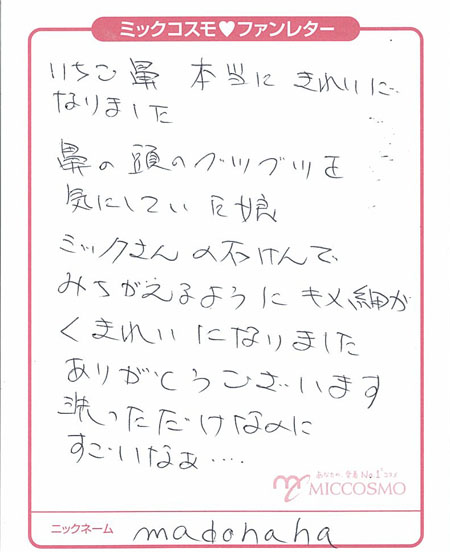 ミックコスモ♥ファンレター
いちご鼻 本当に きれいに
なりました
鼻の頭のブツブツを
気にしていた娘
ミックさんの石けんで
みちがえるように キメ細か
くきれいになりました
ありがとうございます
洗っただけなのに
すごいなぁ‥‥
あなたの、全身No.1コスメ
MICCOSMO
ニックネーム madohaha